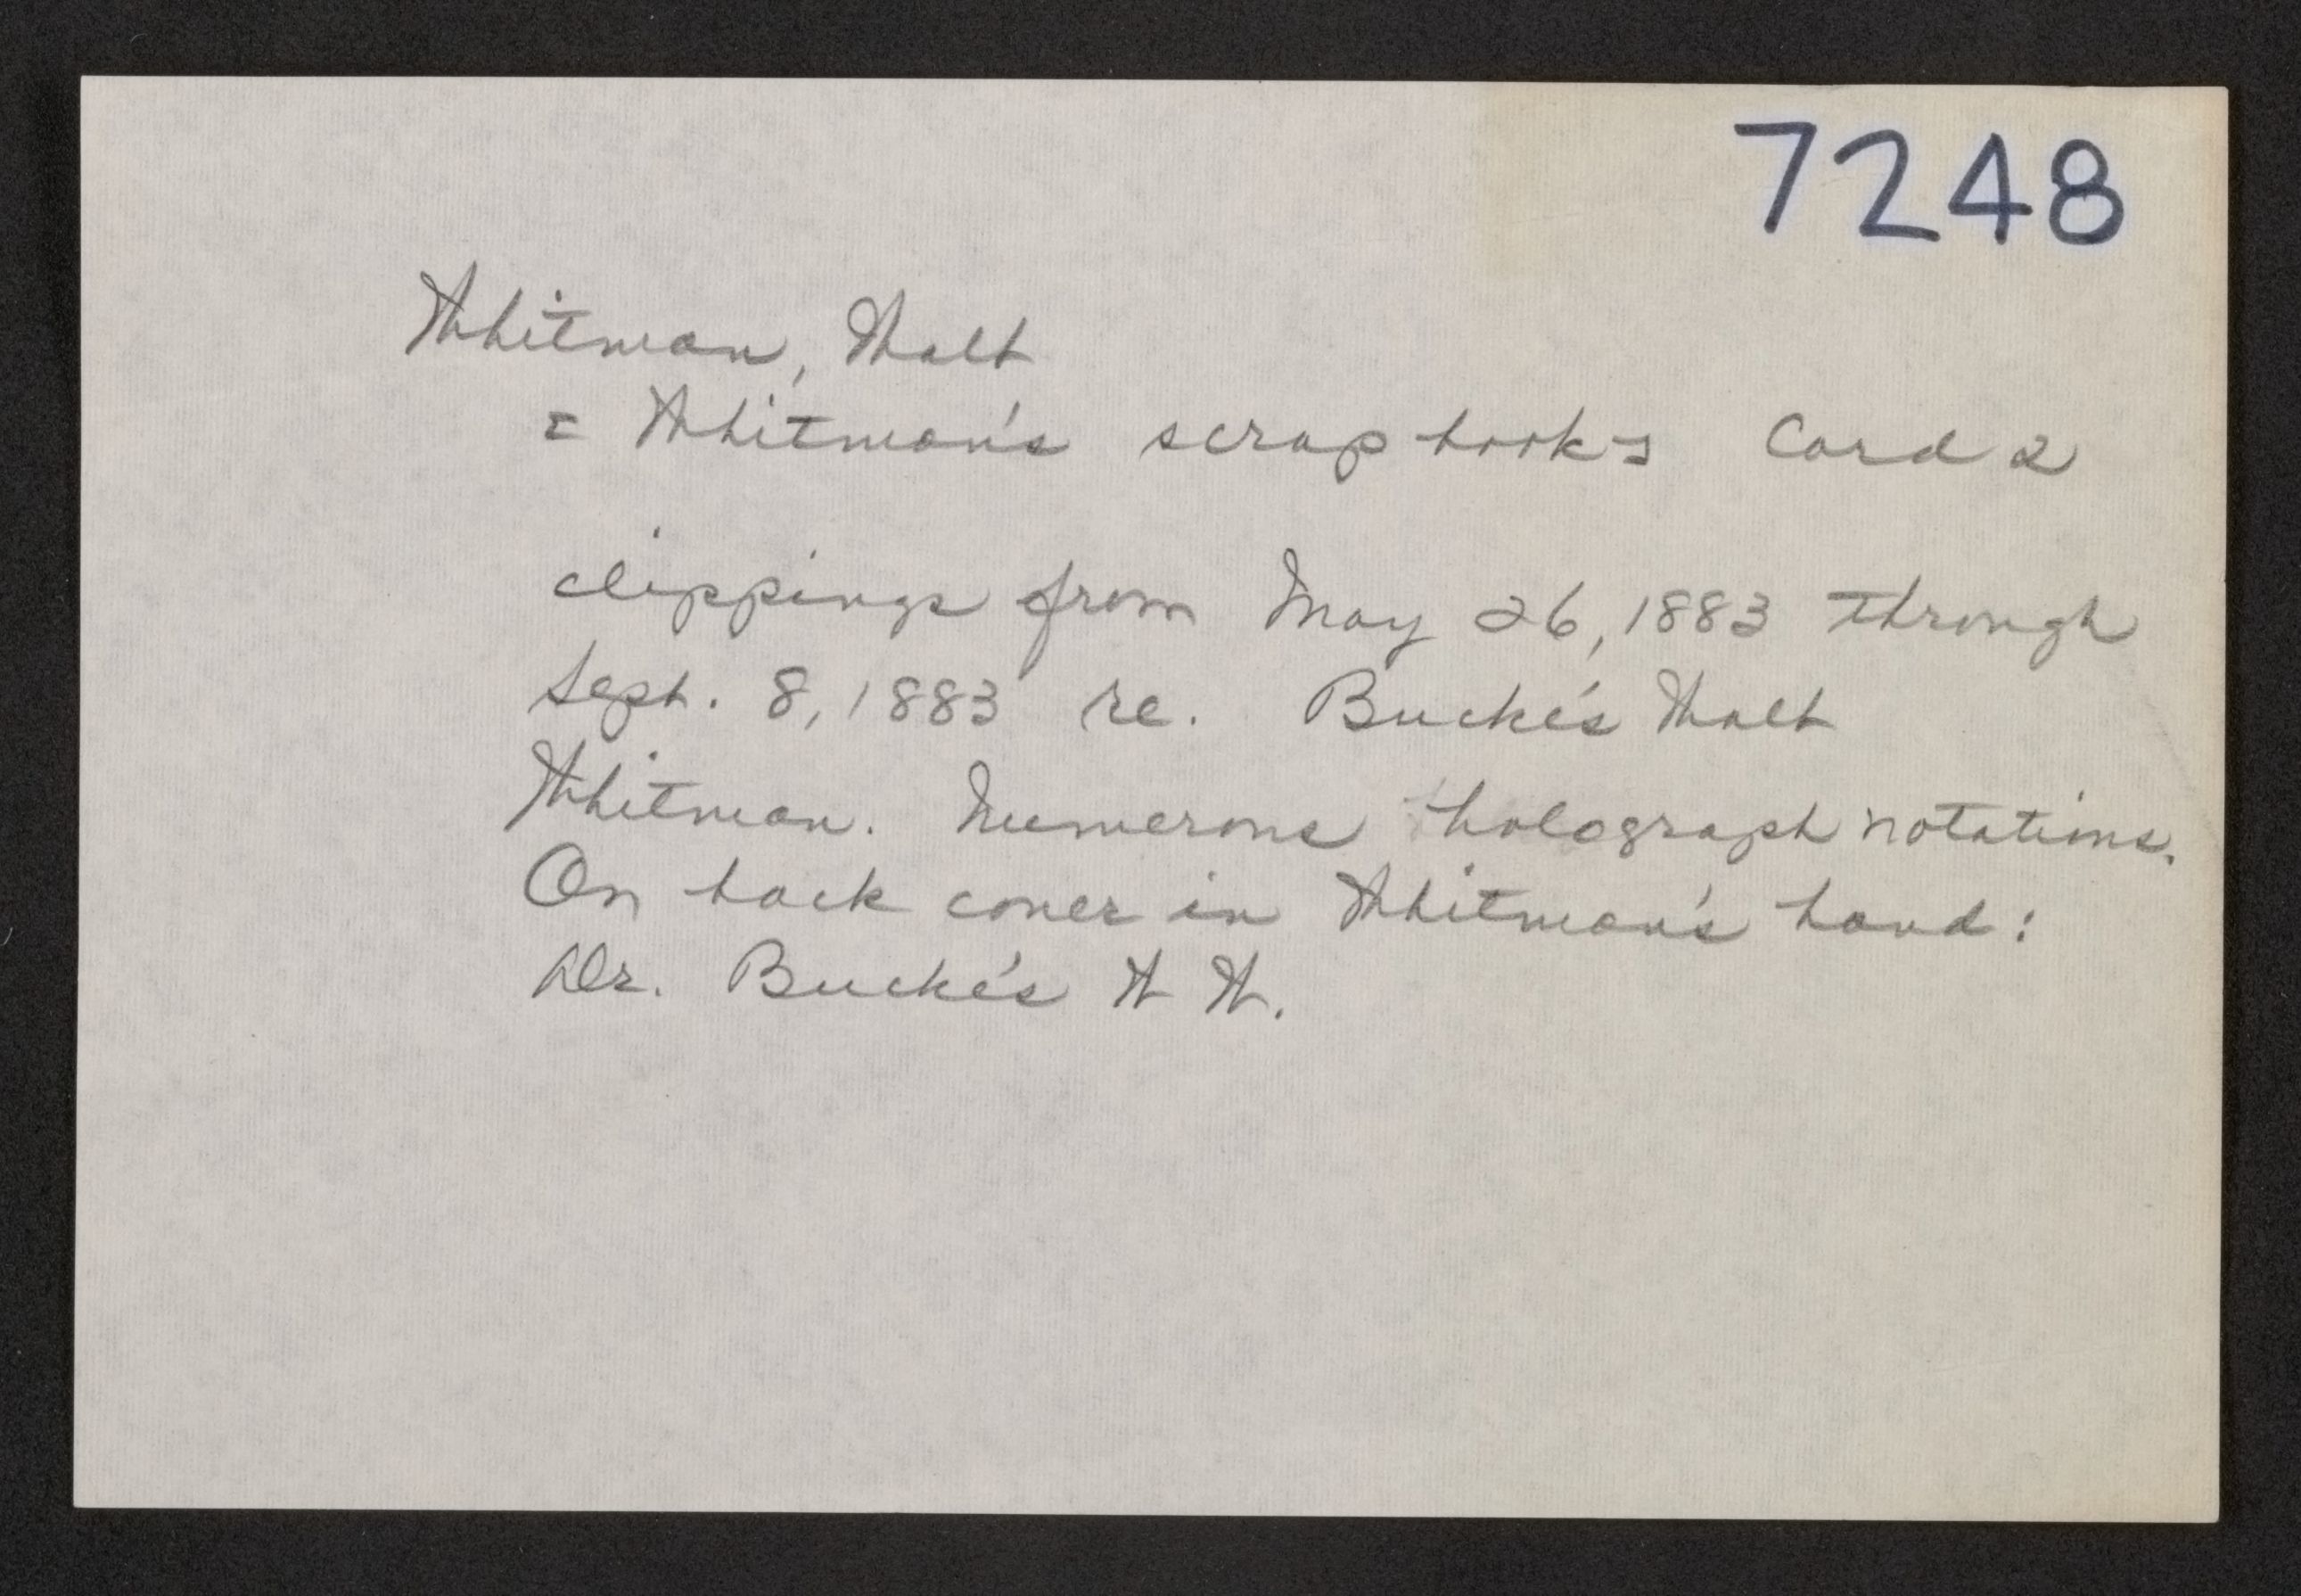 7248
Whitman, Walt
= Whitman's scrapbooks Card 2
clippings from May 26, 1883 through
Sept. 8, 1883 re. Bucke's Walt
Whitman. Numerous holograph notations.
On back cover in Whitman's hand:
Dr. Bucke's W W.